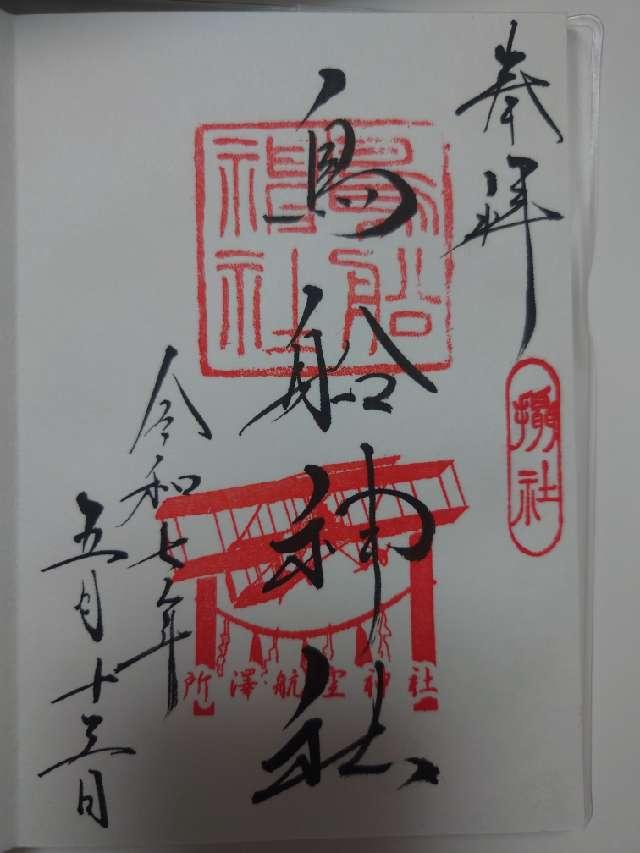 奉拝
摂社
鳥船神社
鳥船
神社
所澤航空神社
令和七年
五月十三日